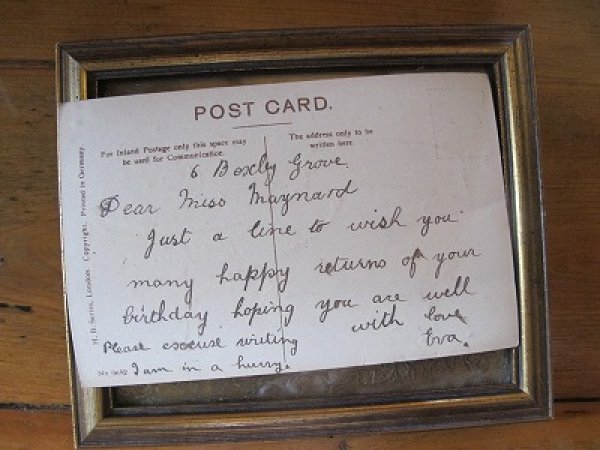 POST CARD.
For Inland Postage only this space may
be used for Communication.
The address only to be
written here
6 Boxly Grove.
Dear Miss Maynard
Just a line to wish you
many happy returns of your
birthday hoping you are well
with love
Eva.
Please excuse writing
I am in a hurry.
H. B. Series, London. Copyright. Printed in Germany.
No